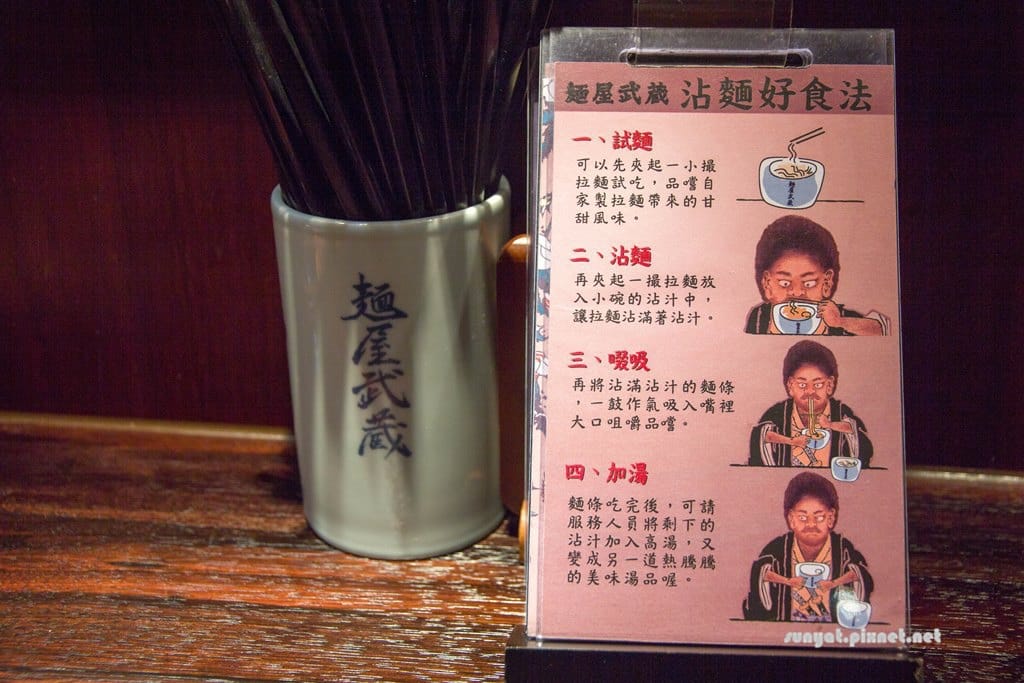 麵屋武蔵
麵屋武蔵 沾麵好食法
一、試麵
可以先夾起一小撮
拉麵試吃，品嚐自
家製拉麵帶來的甘
甜風味。
麵屋武蔵
二、沾麵
再夾起一撮拉麵放
入小碗的沾汁中，
讓拉麵沾滿著沾汁。
三、啜吸
再將沾滿沾汁的麵條
，一鼓作氣吸入嘴裡
大口咀嚼品嚐。
四、加湯
麵條吃完後，可請
服務人員將剩下的
沾汁加入高湯，又
變成另一道熱騰騰
的美味湯品喔。
sunyat.pixnet.net